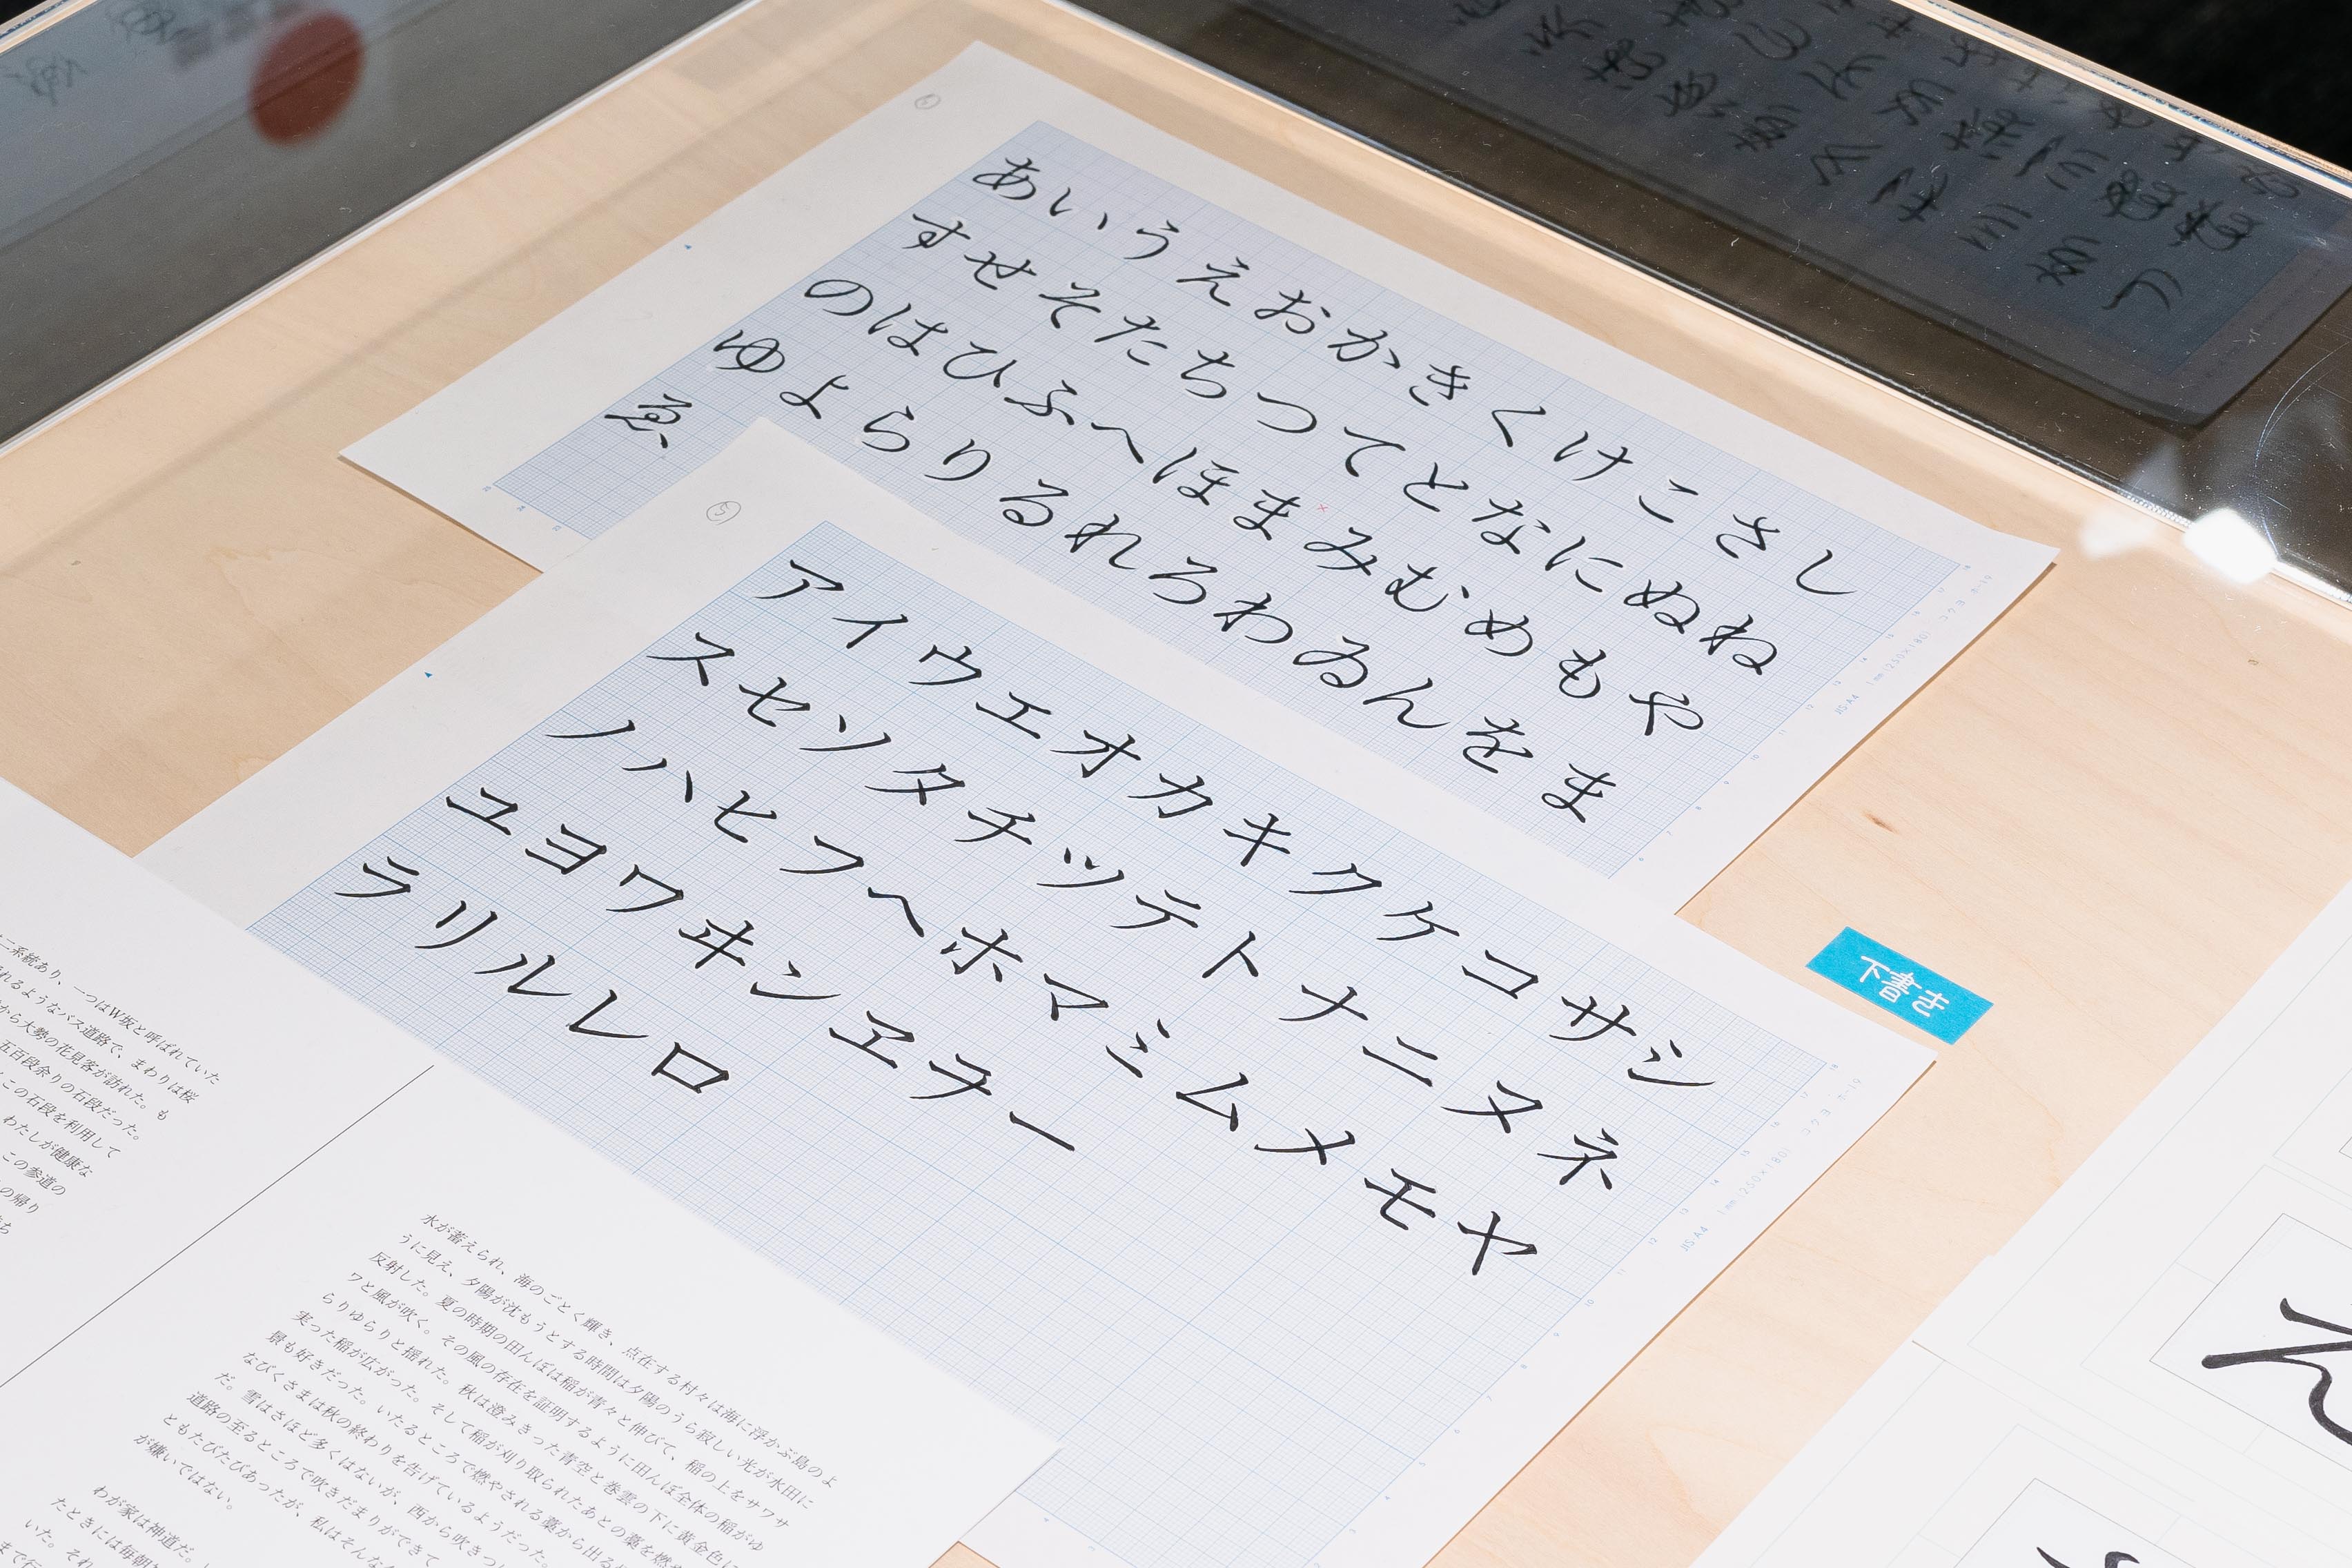 あいうえおかきくけこさし
すせそたちつてとなにぬね
のはひふへほまみむめもや
ゆよらりるれろわゐんをま
ゑ
JIS A4 1mm(250×180) コクヨ ホ-19
⑤
アイウエオカキクケコサシ
スセソタチツテトナニヌネ
ノハヒフヘホマミムメモヤ
ユヨワヰンヱヲー
ラリルレロ
JIS A4 1mm(250×180) コクヨ ホ-19
下書き
二系統あり、一つはW坂と呼ばれていた
れるようなバス道路で、まわりは桜
から大勢の花見客が訪れた。も
五百段余りの石段だった。
この石段を利用して
わたしが健康な
この参道の
の帰り
水が蓄えられ、海のごとく輝き、点在する村々は海に浮かぶ島のよ
うに見え、夕陽が沈もうとする時間は夕陽のうら寂しい光が水田に
反射した。夏の時期の田んぼは稲が青々と伸びて、稲の上をサワサ
ワと風が吹く。その風の存在を証明するように田んぼ全体の稲がゆ
らりゆらりと揺れた。秋は澄みきった青空と巻雲の下に黄金色に
実った稲が広がった。そして稲が刈り取られたあとの藁を燃や
景も好きだった。いたるところで燃やされる藁から出る
なびくさまは秋の終わりを告げているようだった。
だ。雪はさほど多くはないが、西から吹き
道路の至るところで吹きだまりができて
ともたびたびあったが、私はそんな
が嫌いではない。
わが家は神道だ。
たときには毎朝
いた。それ